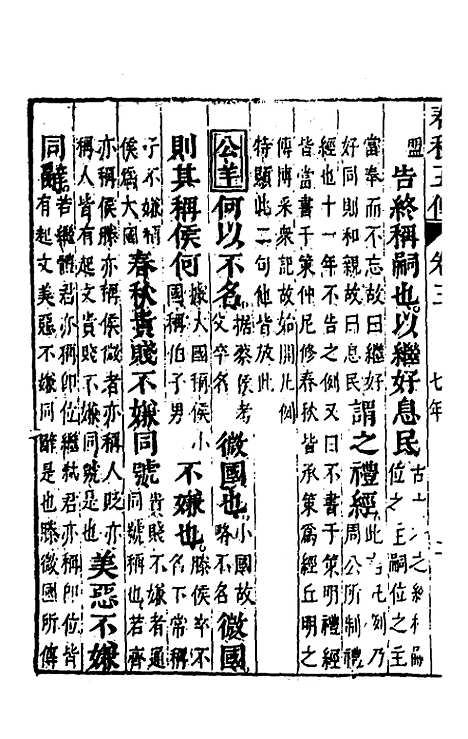 春秋五傳 卷三 七年
盟 告終稱嗣也以繼好息民 之終稱嗣
位之主嗣位之主
當奉而不忘故曰繼好
好同則和親故曰息民 謂之禮經 此言凡例乃
周公所制禮
經也十一年不告之例又曰不書于策明禮經
皆當書于策仲尼修春秋皆承策爲經丘明之
傳博采衆記故始開凡例
特顯此二句他皆放此
公羊 何以不名 據蔡侯考
父卒名 微國也 小國故
略不名 微國
則其稱侯何 據大國稱侯小
國稱伯子男 不嫌也 滕侯卒不
名下常稱
子不嫌稱
侯爲大國 春秋貴賤不嫌同號 貴賤不嫌者通
同號稱也若齊
亦稱侯滕亦稱侯微者亦稱人貶亦
稱人皆有起文貴賤不嫌同號是也 美惡不嫌
同辭 若繼體君亦稱即位繼弒君亦稱即位皆
有起文美惡不嫌同辭是也滕微國所傳